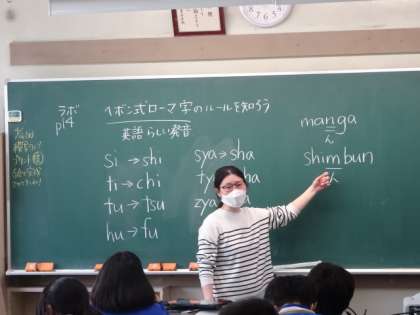 ラボ
p14
ヘボン式ローマ字のルールを知ろう
英語らしい発音
si→shi
ti→chi
tu→tsu
hu→fu
sya→sha
ty
ha
zya
manga
ん
shimbun
ん